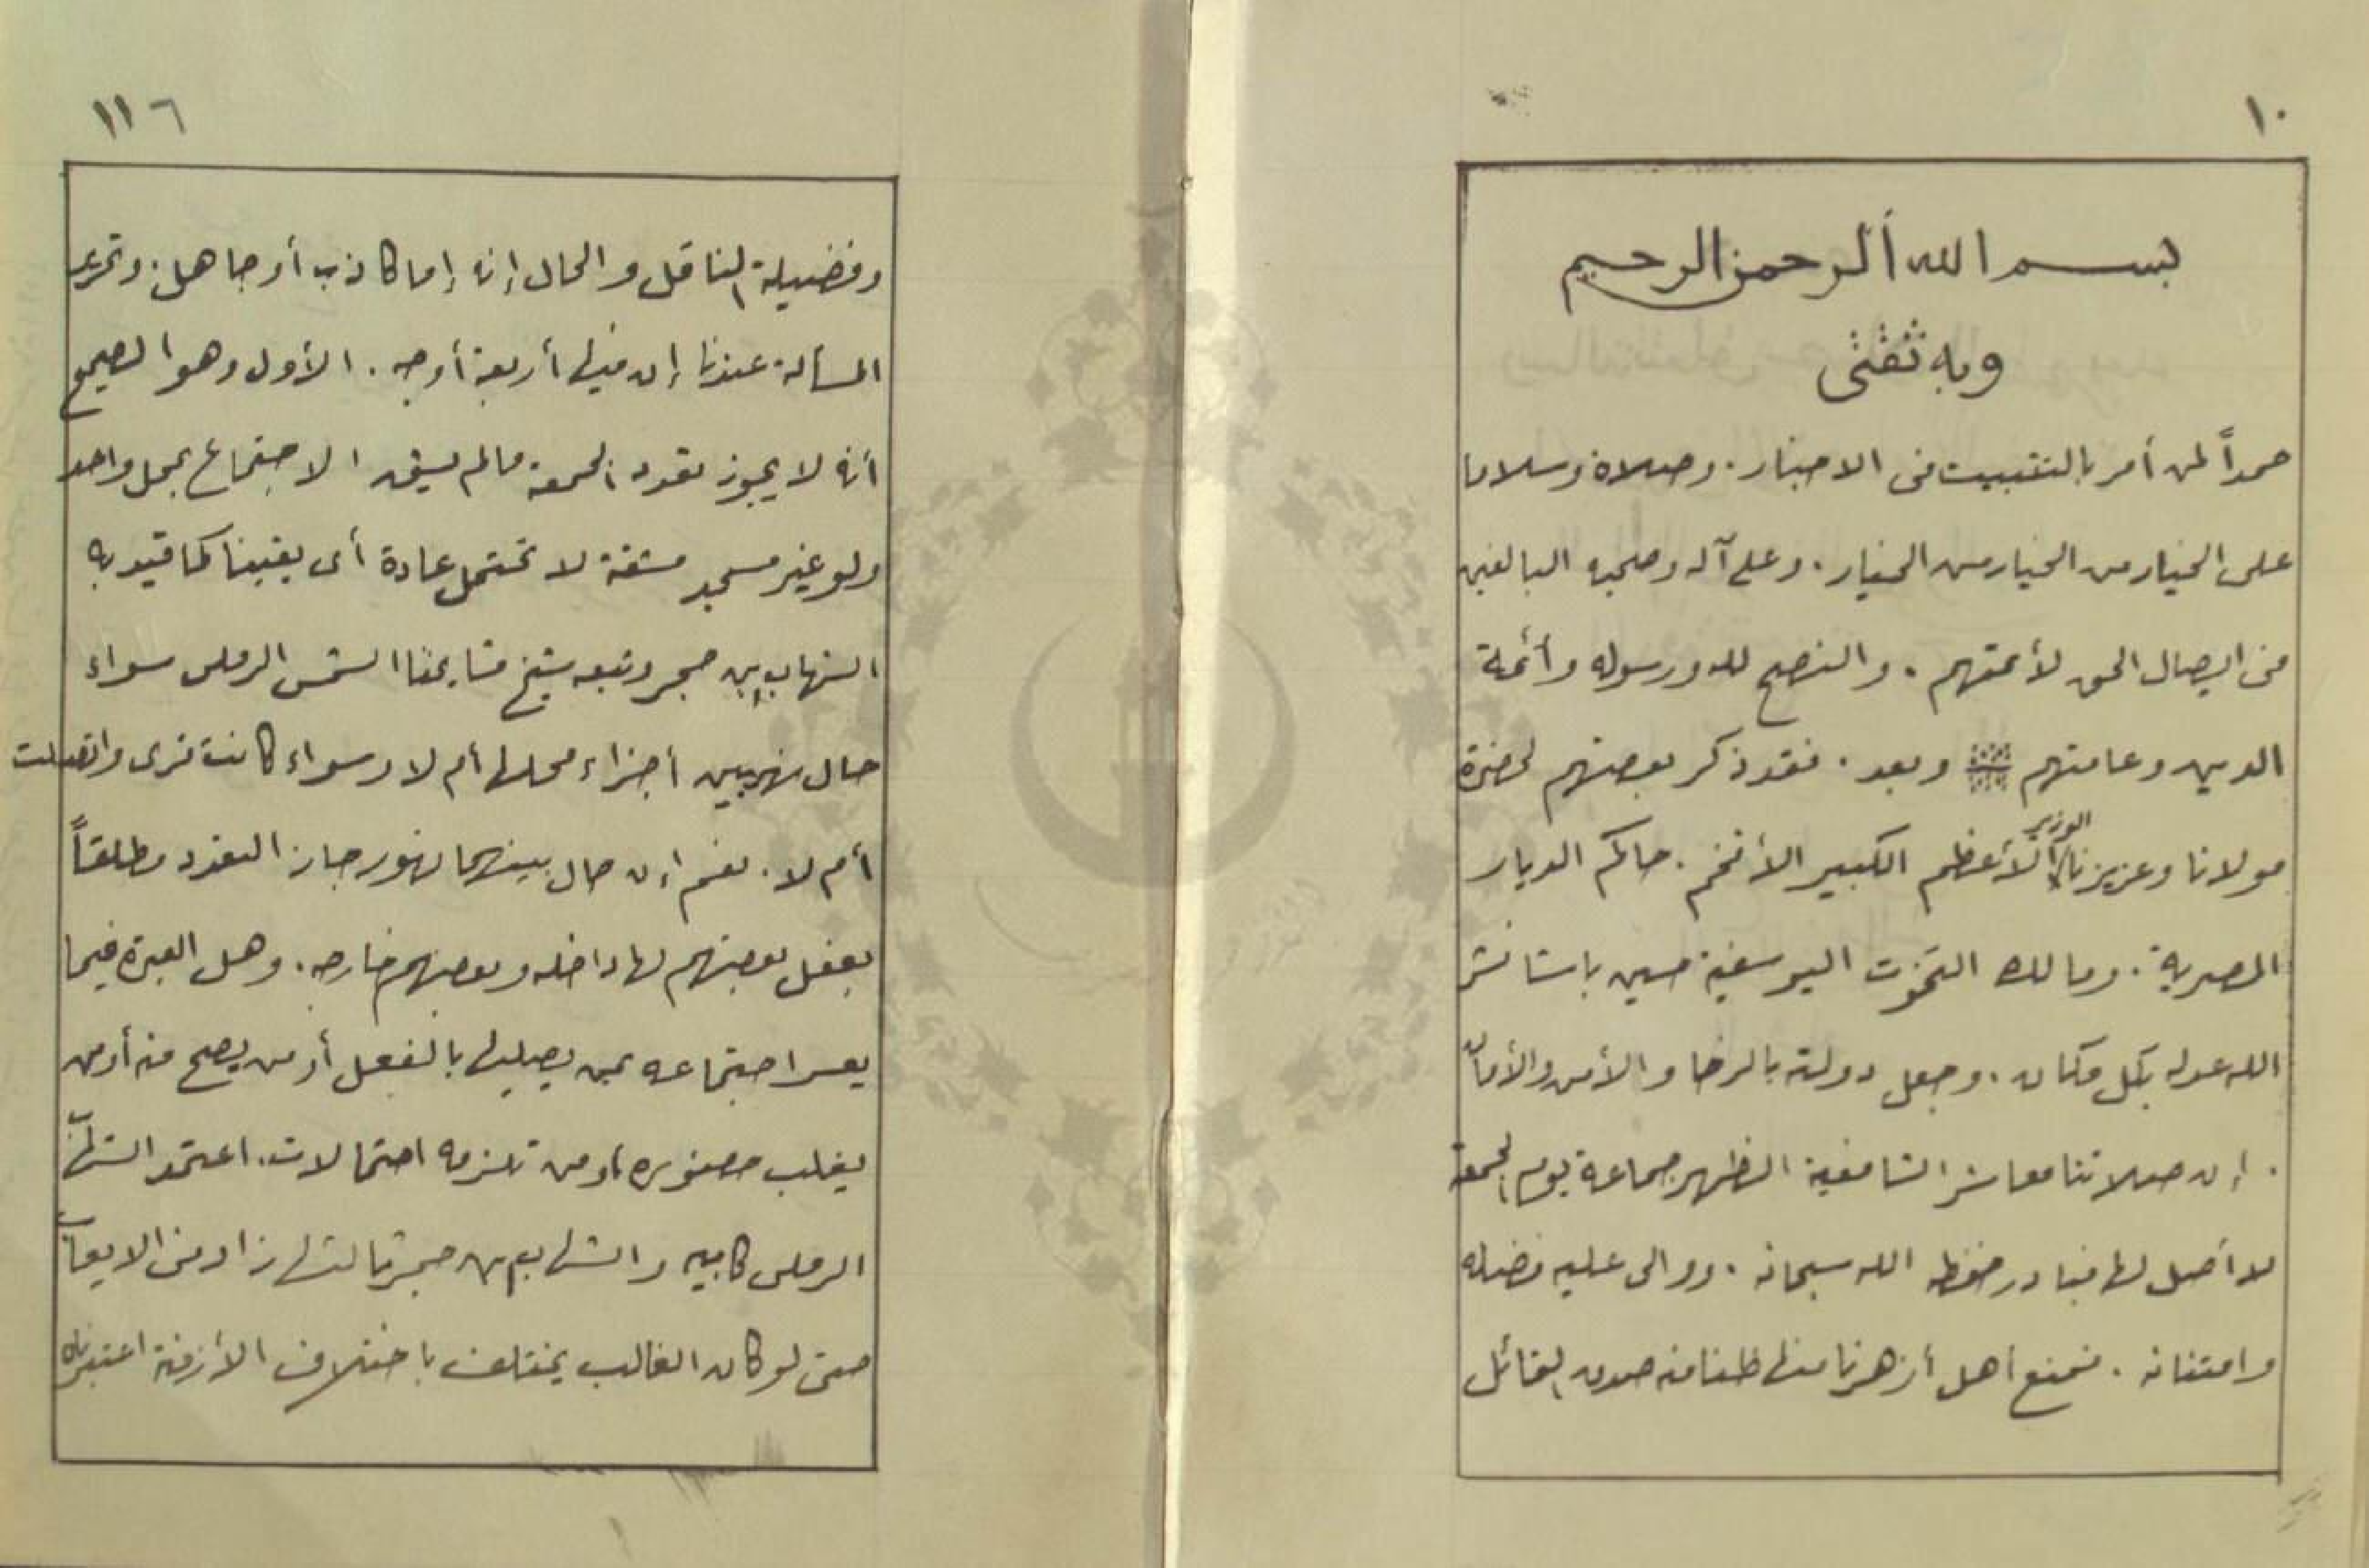 ١٠
بسم الله ألرحمن الرحيم
وبه ثقتى
حمداً لمن أمر بالتثبيت فى الاخبار . وصلاة وسلاما
على الخيار من الخيار من الخيار . وعلى آله وصحبه البالغين
فى ايصال الحق لأمتهم . والنصح لله ورسوله وأئمة
الدين وعامتهم وبعد . فقد ذكر بعضهم لحضرة
مولانا وعزيزنا الوزير الأعظم الكبير الأفخم . حاكم الديار
المصرية . ومالك التخوت اليوسفية حسين باشا نشر
الله عدله بكل مكان . وجعل دولته بالرخا والأمن والأمان
. إن صلاتنا معاشر الشافعية الظهر جماعة يوم الجمعة
لا أصل لها فبادر حفظه الله سبحانه . ووالى عليه فضله
وامتنانه . فمنع أهل أزهرنا منها ظنا منه صدق القائل
١١٦
وفضيلة الناقل والحال إنه إما كاذب أو جاهل . وتحرير
المسألة عندنا إن فيها أربعة أوجه . الأول وهو الصحيح
أنه لا يجوز تعدد الجمعة مالم يشق الاجتماع بمحل واحد
ولو غير مسجد مشقة لا تحتمل عادة أى يقينا كما قيد به
الشهاب بن حجر وتبعه شيخ مشايخنا الشمس الرملى سواء
حال نهر بين أجزاء محلها أم لا وسواء كانت قرى واتصلت
أم لا . نعم إن حال بينهما نهور جاز التعدد مطلقاً
بفعل بعضهم لها داخله وبعضهم خارجه . وهل العبرة فيما
يعسر اجتماعه بمن يصليها بالفعل أو من يصح منه أو من
يغلب حضوره أو من تلزمه احتمالات . اعتمد الشهاب
الرملى كابيه والشهاب بن حجر ثالثها زاد فى الايعاب
حتى لو كان الغالب يختلف باختلاف الأزمنة اعتبرناه